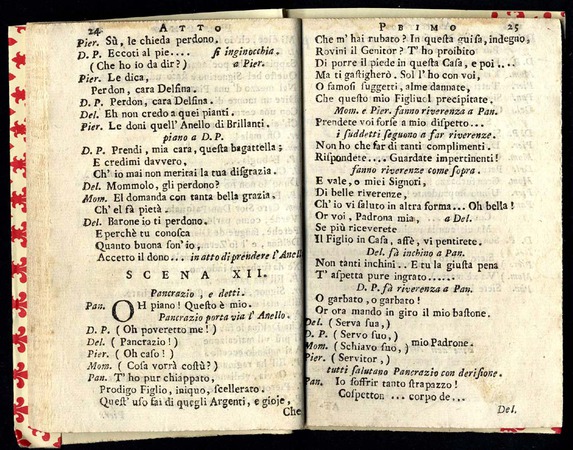 24 ATTO
Pier. Sù, le chieda perdono.
D. P. Eccoti al pie.... si inginocchia.
( Che ho io da dir? ) a Pier.
Pier. Le dica,
Perdon, cara Delfina.
D. P. Perdon, cara Delfina.
Del. Eh non credo a quei pianti.
Pier. Le doni quell' Anello di Brillanti.
piano a D. P.
D. P. Prendi, mia cara, questa bagattella;
E credimi davvero,
Ch' io mai non meritai la tua disgrazia.
Del. Mommolo, gli perdono?
Mom. El domanda con tanta bella grazia,
Ch' el sà pietà.
Del. Barone io ti perdono.
E perchè tu conosca
Quanto buona son' io,
Accetto il dono... in atto di prendere l' Anell
SCENA XII.
Pancrazio, e detti.
Pan. OH piano! Questo è mio.
Pancrazio porta via l' Anello.
D. P. ( Oh poveretto me! )
Del. ( Pancrazio! )
Pier. ( Oh caso! )
Mom. ( Cosa vorrà costù? )
Pan. T' ho pur chiappato,
Prodigo Figlio, iniquo, scellerato.
Quest' uso fai di quegli Argenti, e gioje,
Che
PRIMO 25
Che m' hai rubato? In questa guisa, indegno,
Rovini il Genitor? T' ho proibito
Di porre il piede in questa Casa, e poi....
Ma ti gastigherò. Sol l' ho con voi,
O famosi suggetti, alme dannate,
Che questo mio Figliuol precipitate.
Mom. e Pier. fanno riverenza a Pan.
Prendete voi forse a mio dispetto...
i suddetti seguono a far riverenze.
Non ho che far di tanti complimenti.
Rispondete.... Guardate impertinenti!
fanno riverenze come sopra.
E vale, o miei Signori,
Di belle riverenze,
Ch' io vi saluto in altra forma... Oh bella!
Or voi, Padrona mia, a Del.
Se più riceverete
Il Figlio in Casa, affè, vi pentirete.
Del. fà inchino a Pan.
Non tanti inchini.. E tu la giusta pena
T' aspetta pure ingrato......
D. P. fà riverenza a Pan.
O garbato, o garbato!
Or ora mando in giro il mio bastone.
Del. ( Serva sua, )
D. P. ( Servo suo, )
Mom. ( Schiavo suo, ) mio Padrone.
Pier. ( Servitor, )
tutti salutano Pancrazio con derisione.
Pan. Io soffrir tanto strapazzo!
Cospetton ... corpo de...
Del.